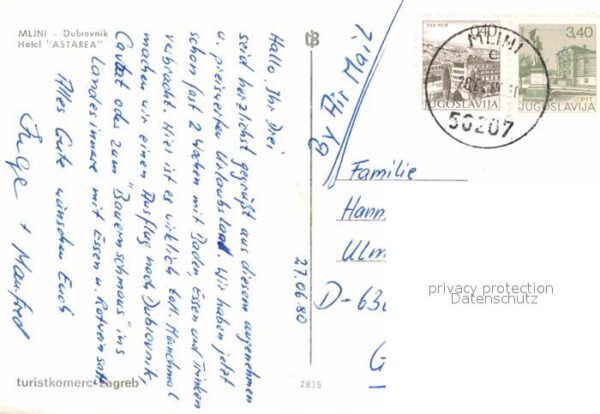 MLINI - Dubrovnik
Hotel "ASTAREA"
Hallo, Ihr Drei
seid herzlichst gegrüßt aus diesem angenehmen
u. preiswerten Urlaubsland. Wir haben jetzt
schon fast 2 Wochen mit Baden, Essen und Trinken
verbracht. Hier ist es wirklich toll. Manchmal
machen wir einen Ausflug nach Dubrovnik,
Cavtat oder zum "Bauernschmaus" ins
Landesinnere mit Essen u. Rotwein satt.
Alles Gute wünschen Euch
Inge + Manfred
27.06.80
turistkomerc-zagreb
2835
By Air Mail
JUGOSLAVIJA
3,40
JUGOSLAVIJA
MLINI
50207
Familie
Hann
Ulm
D-63
G
privacy protection
Datenschutz